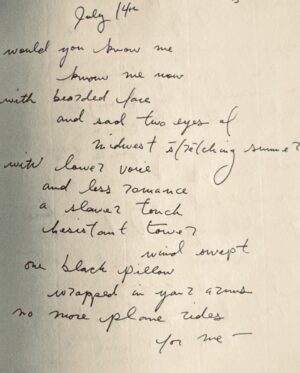 July 14th
would you know me
know me now
with bearded face
and sad two eyes of
midwest stretching summer
with lower voice
and less romance
a slower touch
hesitant tower
wind swept
one black pillow
wrapped in your arms
no more plane rides
for me –